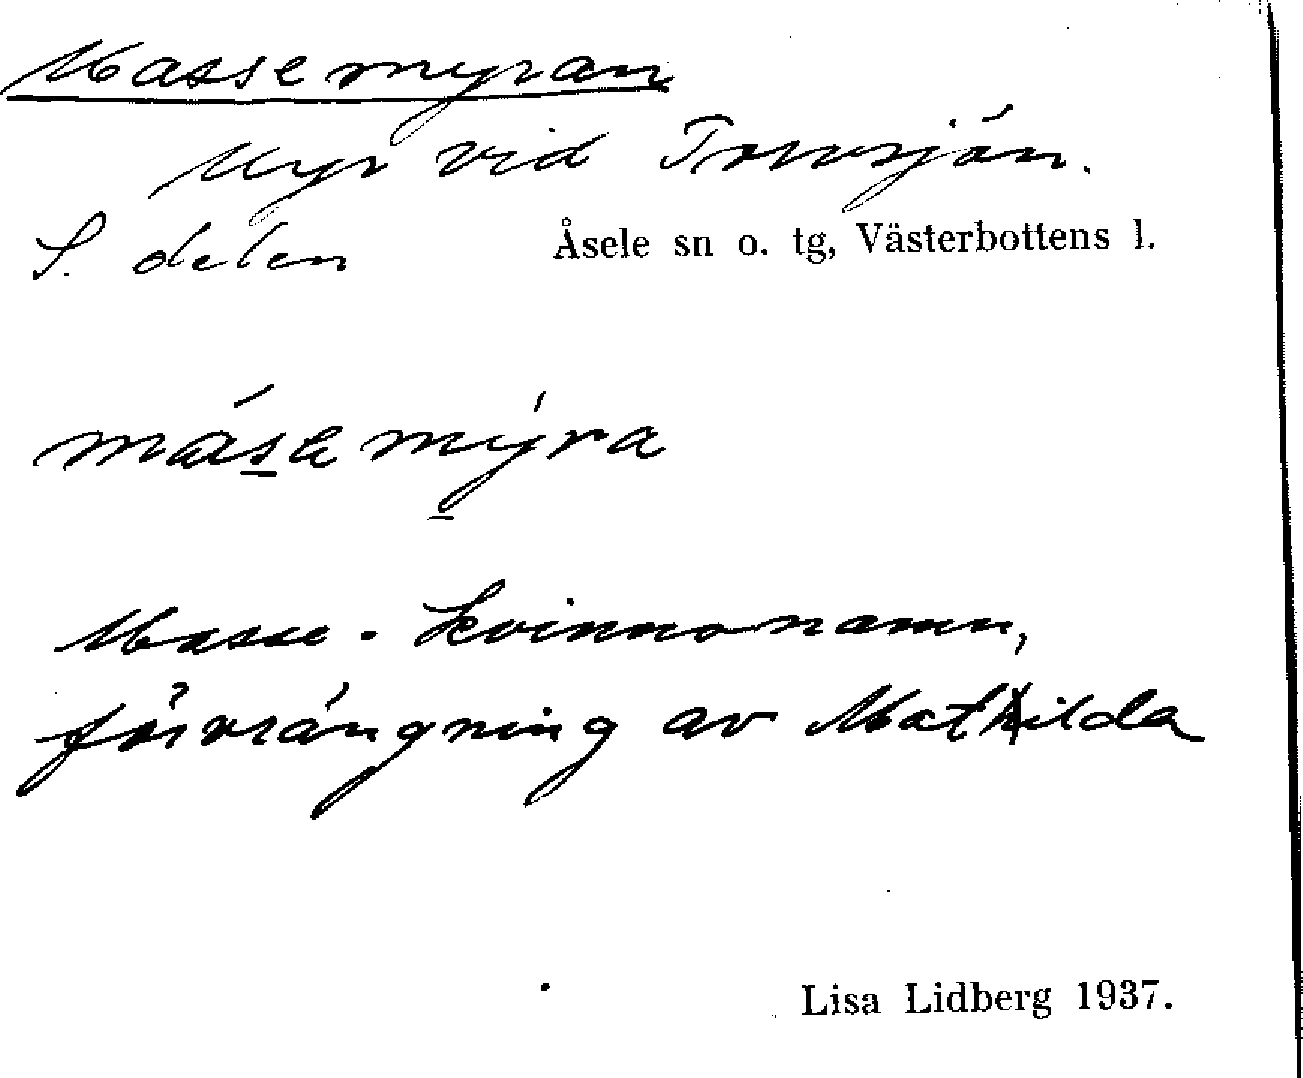 Massemyran
Myr vid Torvsjön.
S. delen Åsele sn o. tg, Västerbottens l.
másamýra
Masse - kvinnonamn,
förvrängning av Mathilda
Lisa Lidberg 1937.